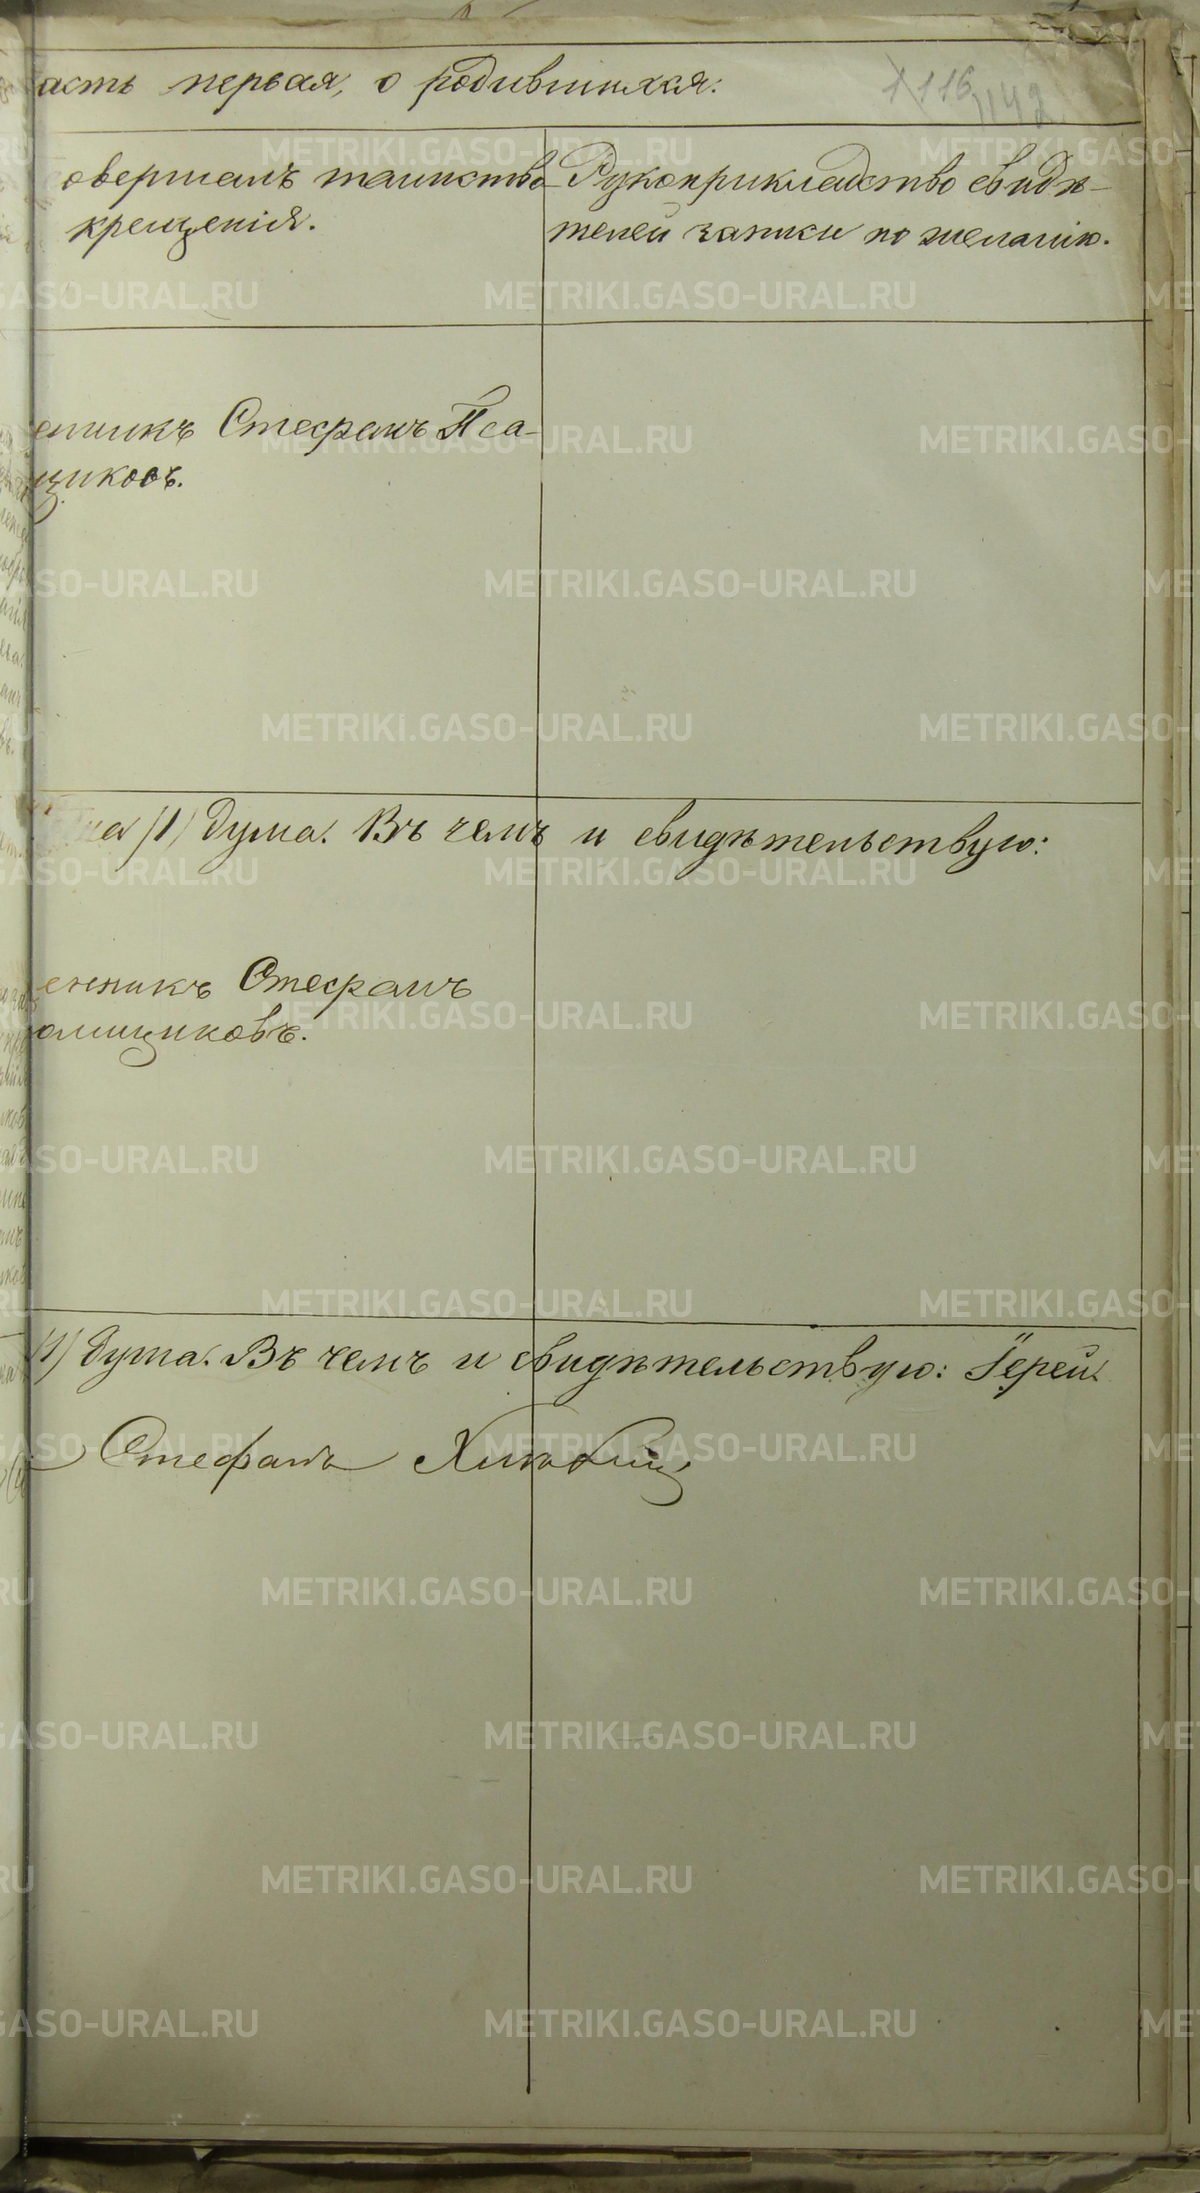 асть первая, о родившихся:
1116 1142
овершалъ таинство
крещенія.
Рукоприкладство свидѣ-
телей записи по желанію.
енникъ Стефанъ Пса-
щиковъ.
на (1) душа. Въ чемъ и свидѣтельствую:
енникъ Стефанъ
омщиковъ.
(1) душа. Въ чемъ и свидѣтельствую: Іерей
Стефанъ
METRIKI.GASO-URAL.RU